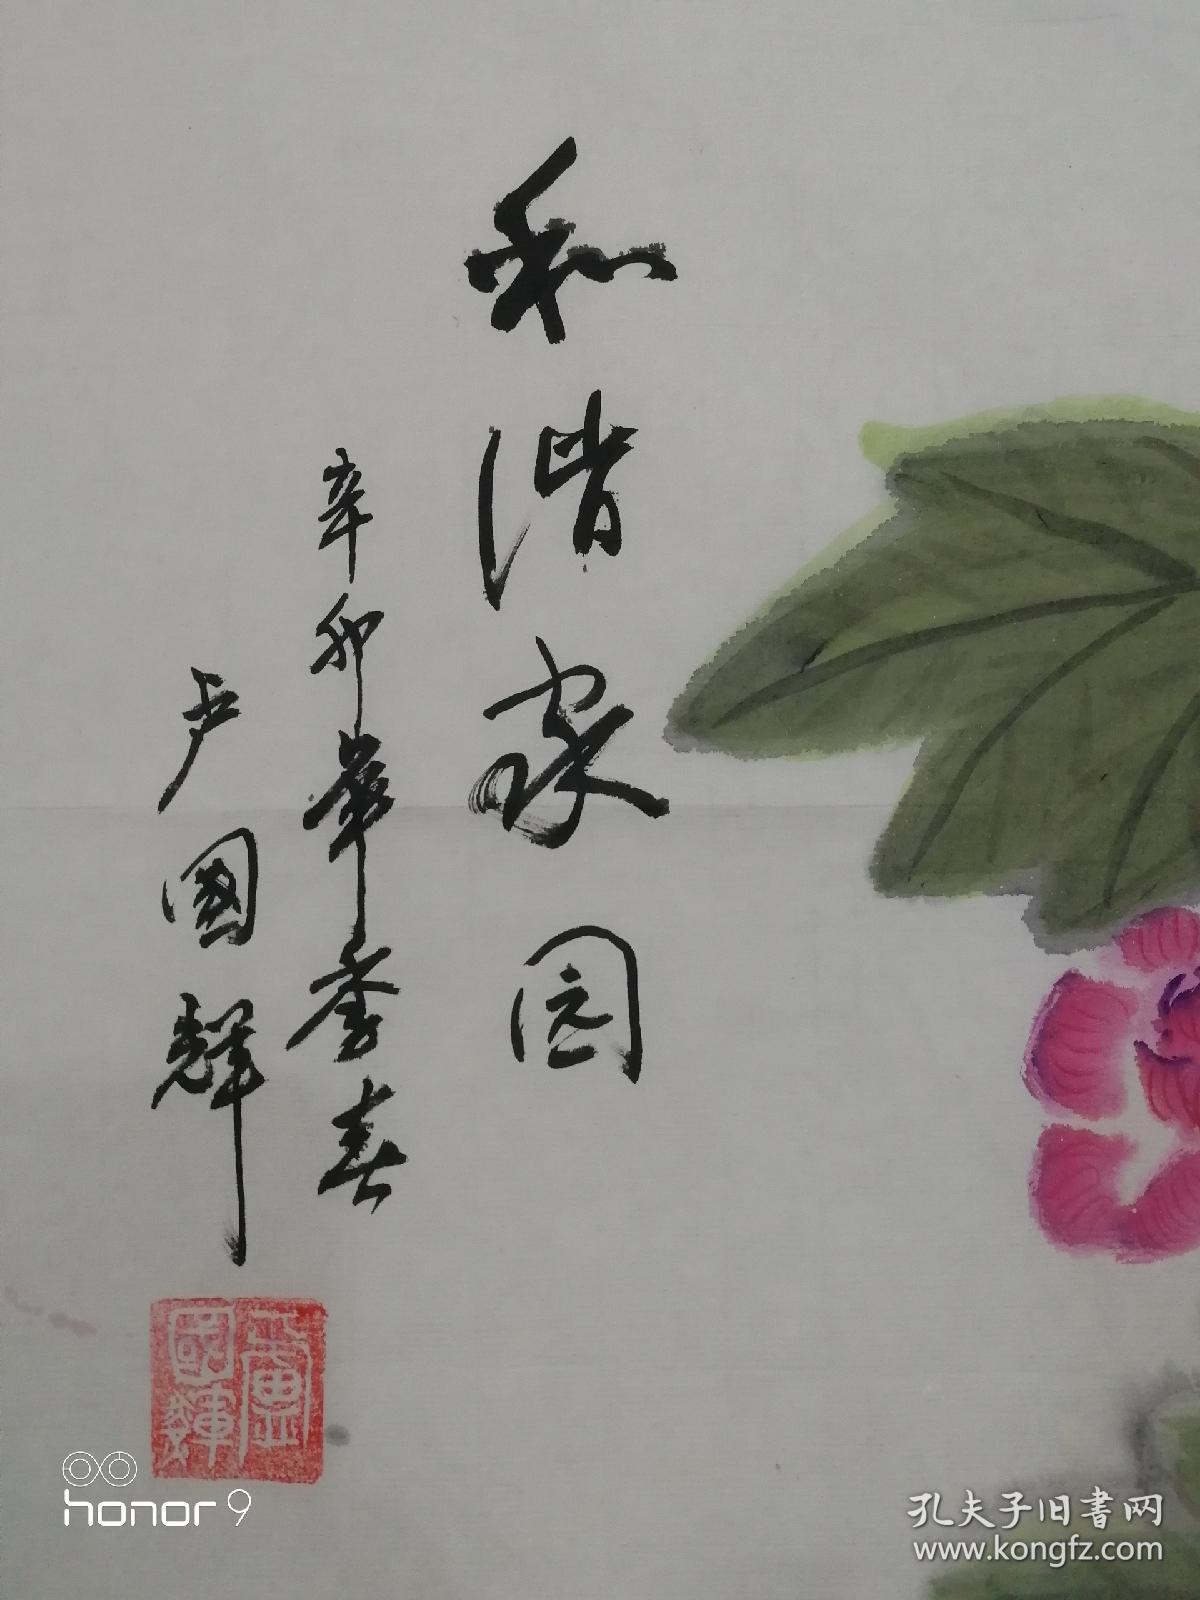 和谐家园
辛卯年季春
卢國輝
盧國輝
honor 9
孔夫子旧書网
www.kongfz.com